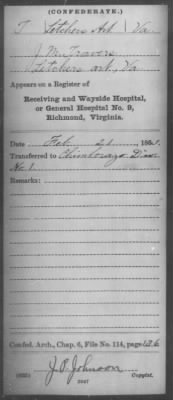 (CONFEDERATE.)
T Letchers Art. Va.
J. M. Travers
Letchers Art, Va
Appears on a Register of
Receiving and Wayside Hospital,
or General Hospital No. 9,
Richmond, Virginia.
Date Feb 21, 186
Transferred to Chimborazo Divis
No. 1.
Remarks:
Confed. Arch., Chap. 6, File No. 114, page 136
J. P. Johnson
(635) Copyist.